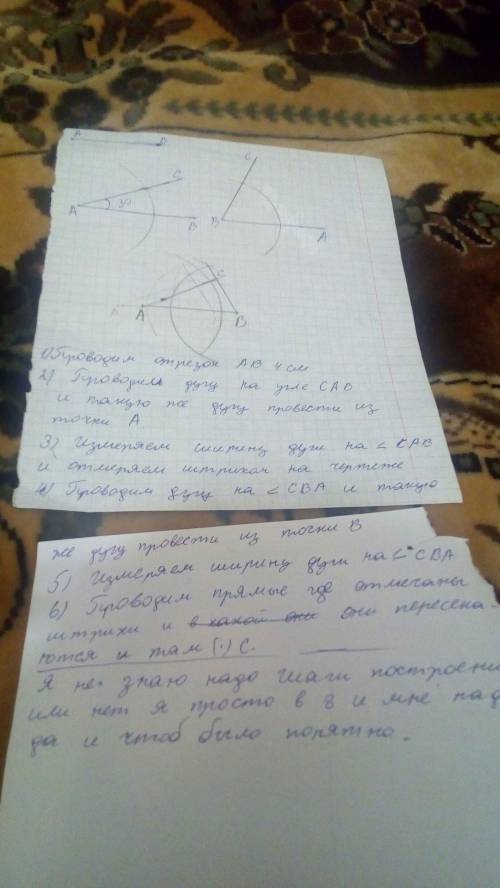 A B
A 30 C B
C B A
A A C B
1) Проводим отрезок AB 4 см
2) Проводим дугу на угле CAB
и такую же дугу провести из
точки A
3) Измеряем ширину дуги на ∠ CAB
и отмеряем штрихом на чертеже
4) Проводим дугу на ∠ CBA и такую
же дугу провести из точки B
5) Измеряем ширину дуги на ∠ CBA
6) Проводим прямые где отмечаны
штрихи и они пересека-
ются и там (·) C.
Я не знаю надо шаги построени
или нет я просто в 8 и мне над
да и чтоб было понятно.